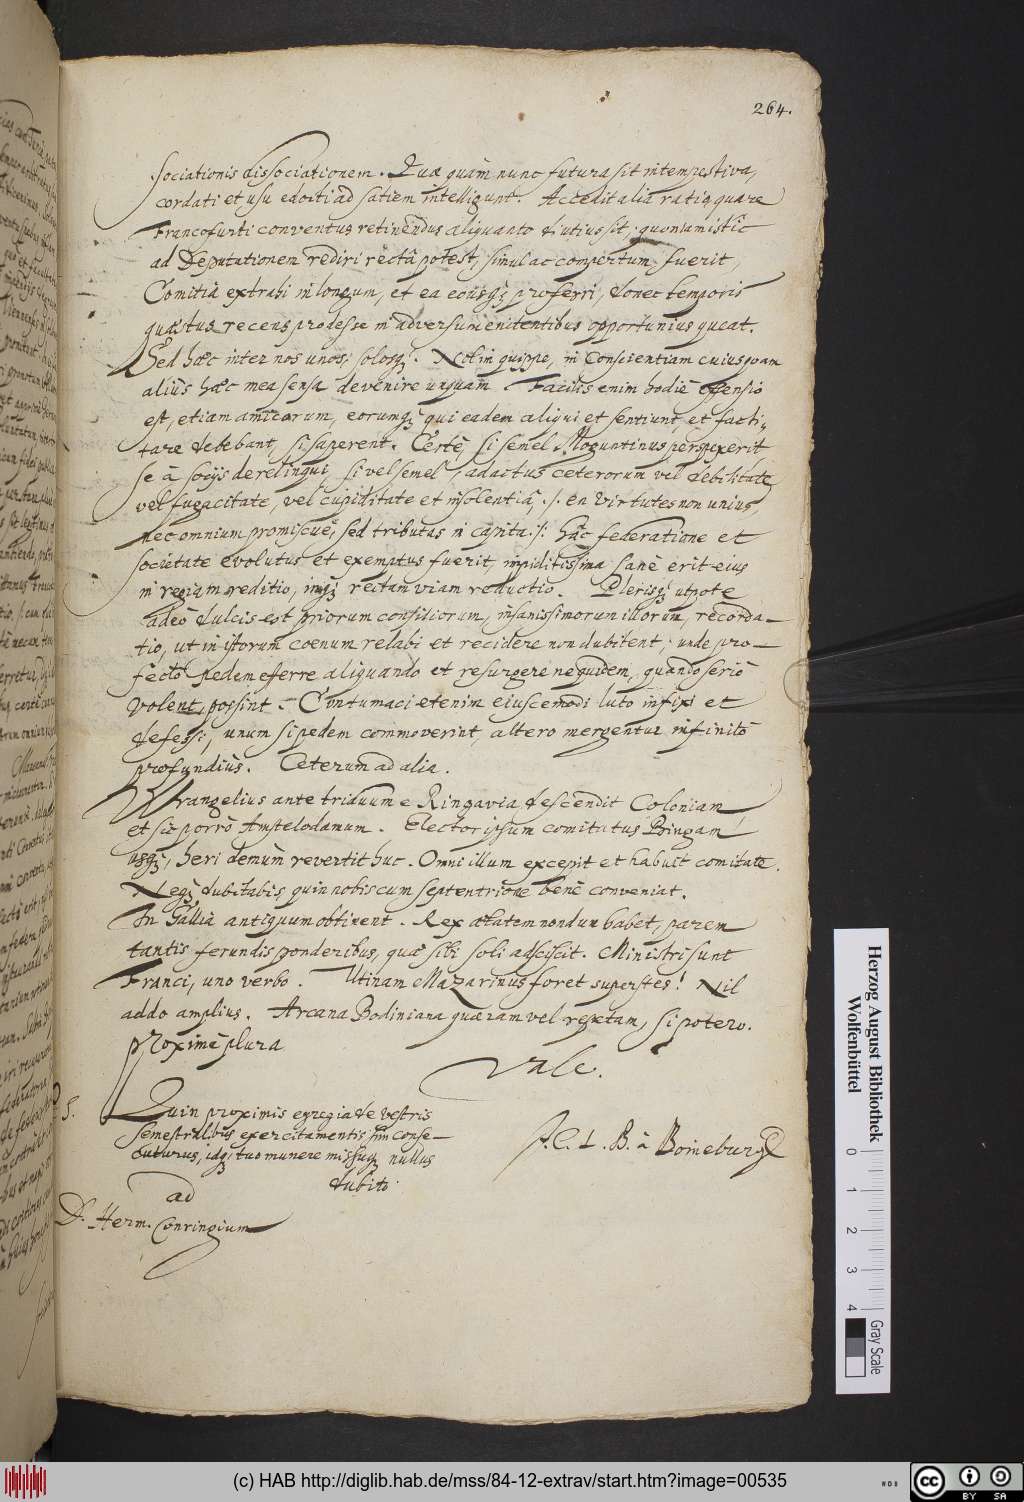 264.
sociationis dissociationem. Quæ quàm nunc futura sit intempestiva,
cordati et usu edocti ad satiem intelligunt. Accedit alia ratio, quare
Francofurti conventus retinendus aliquanto diutius sit; quoniam istîc
ad Deputationem rediri rectâ potest, simul ac compertum fuerit,
Comitia extrahi in longum, et ea eousq; proferri, donec temporis
quæstus recens prodesse in adversum enitentibus opportunius queat.
Sed hæc inter nos unos, solosq;. Nolim quippe, in Conscientiam cuiusquam
alius hæc mea sensa devenire unquam. Facilis enim hodiè offensio
est, etiam amicorum, eorumq; qui eadem aliqui et sentiunt, et facti-
tare debebant, si saperent. Certè, si semel Moguntinus perspexerit,
se à socijs derelinqui, si vel semel, adactus ceterorum vel debilitate,
vel fugacitate, vel cupiditate et insolentiâ, /: en virtutes non unius,
nec omnium promiscuè, sed tributas in capita :/ hâc federatione et
societate evolutus et exemptus fuerit, inpiditissima sanè erit eius
in regiam reditio, inq; rectam viam reductio. Plerisq; utpote
adeò dulcis est priorum consiliorum, insanissimorum illorum, recorda-
tio, ut in istorum coenum relabi et recidere non dubitent; unde pro-
fectò pedem eferre aliquando et resurgere nequidem, quando seriò
volent, possint. Contumaci etenim eiuscemodi luto infixi et
defessi, unum si pedem commoverint, altero mergentur infinitò
profundiùs. Ceterum ad alia.
Wrangelius ante triduum e Ringavia descendit Coloniam
et sic porrò Amstelodamum. Elector ipsum comitatus Bingam
usq;, heri demùm revertit huc. Omni illum excepit et habuit comitate.
Neq; dubitabis, quin nobiscum septentrione benè conveniat.
In Galliâ antiquum obtinent. Rex ætatem nondum habet, parem
tantis ferundis ponderibus, quæ sibi soli adsciscit. Ministri sunt
Franci, uno verbo. Utinam Mazarinus foret superstes! Nil
addo amplius. Arcana Bodiniana quæram vel reptam, si potero.
Proximè plura
Vale.
S.
Quin proximis egregia de vestris
semestralibus exercitamentis sim conse-
cuturus, idq; tuo munere missuq; nullus
dubito.
J. C. L. B. à Boineburg
ad
D. Herm. Conringium
Herzog August Bibliothek
Wolfenbüttel
0 1 2 3 4
Gray Scale
(c) HAB http://diglib.hab.de/mss/84-12-extrav/start.htm?image=00535
cc BY SA